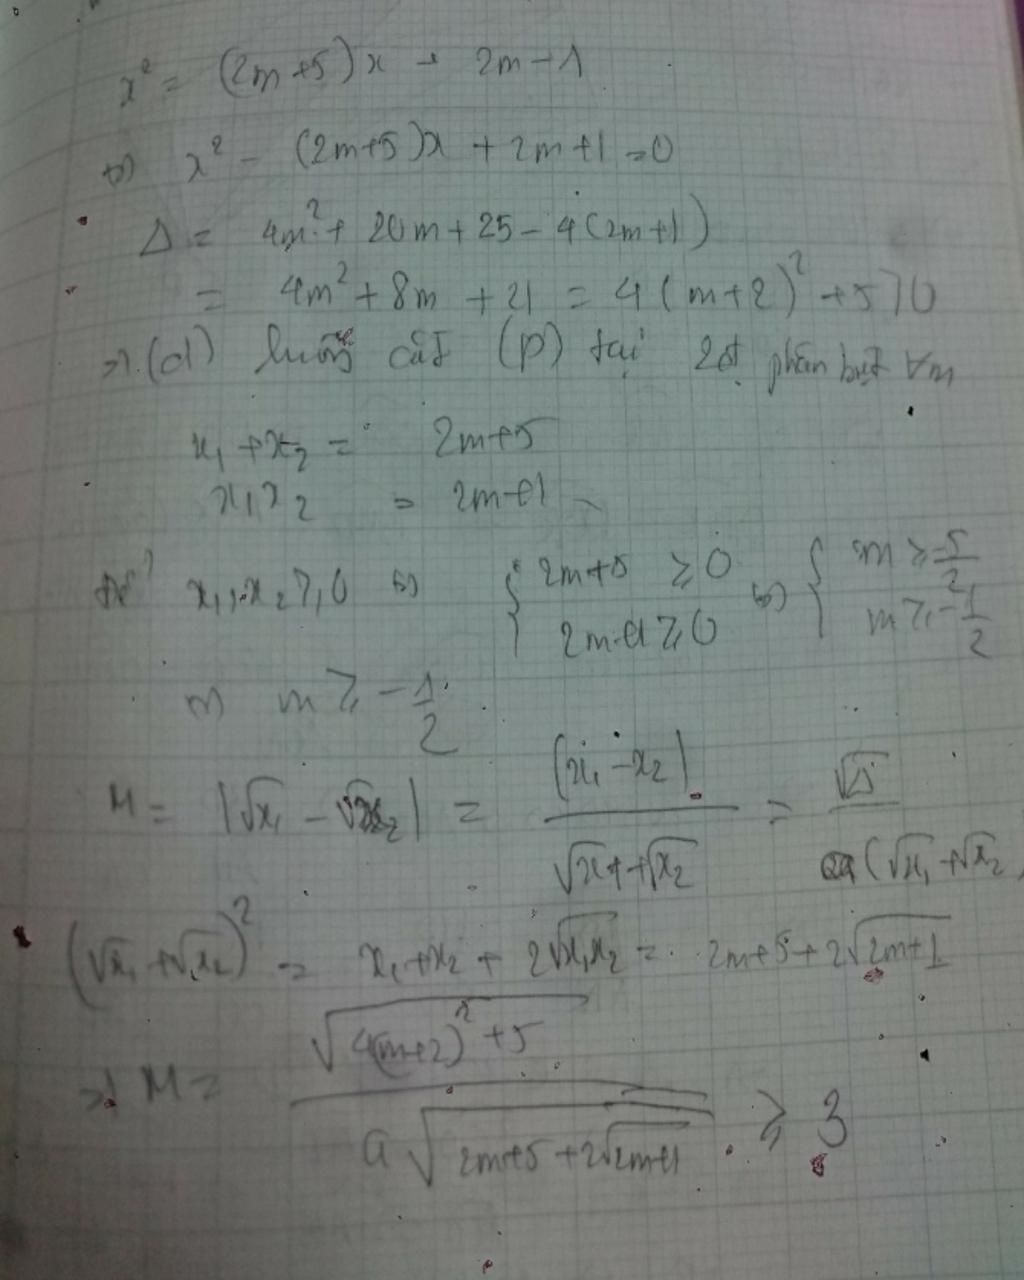 x² = (2m+5)x - 2m-1
⇔ x² - (2m+5)x + 2m+1 = 0
Δ = 4m² + 20m + 25 - 4(2m+1)
= 4m² + 8m + 21 = 4(m+2)² + 5 > 0
⇒ (d) luôn cắt (P) tại 2đt phân biệt ∀m
x₁ + x₂ = 2m+5
x₁x₂ = 2m+1
Để x₁, x₂ ≥ 0 ⇔ { 2m+5 ≥ 0 ; 2m+1 ≥ 0 ⇔ { m ≥ -5/2 ; m ≥ -1/2
⇔ m ≥ -1/2
M = |√x₁ - √x₂| = |x₁ - x₂| / (√x₁ + √x₂) = √Δ / a(√x₁ + √x₂)
(√x₁ + √x₂)² = x₁ + x₂ + 2√x₁x₂ = 2m+5+2√(2m+1)
⇒ M = √(4(m+2)² + 5) / a√(2m+5+2√(2m+1)) ≥ 3